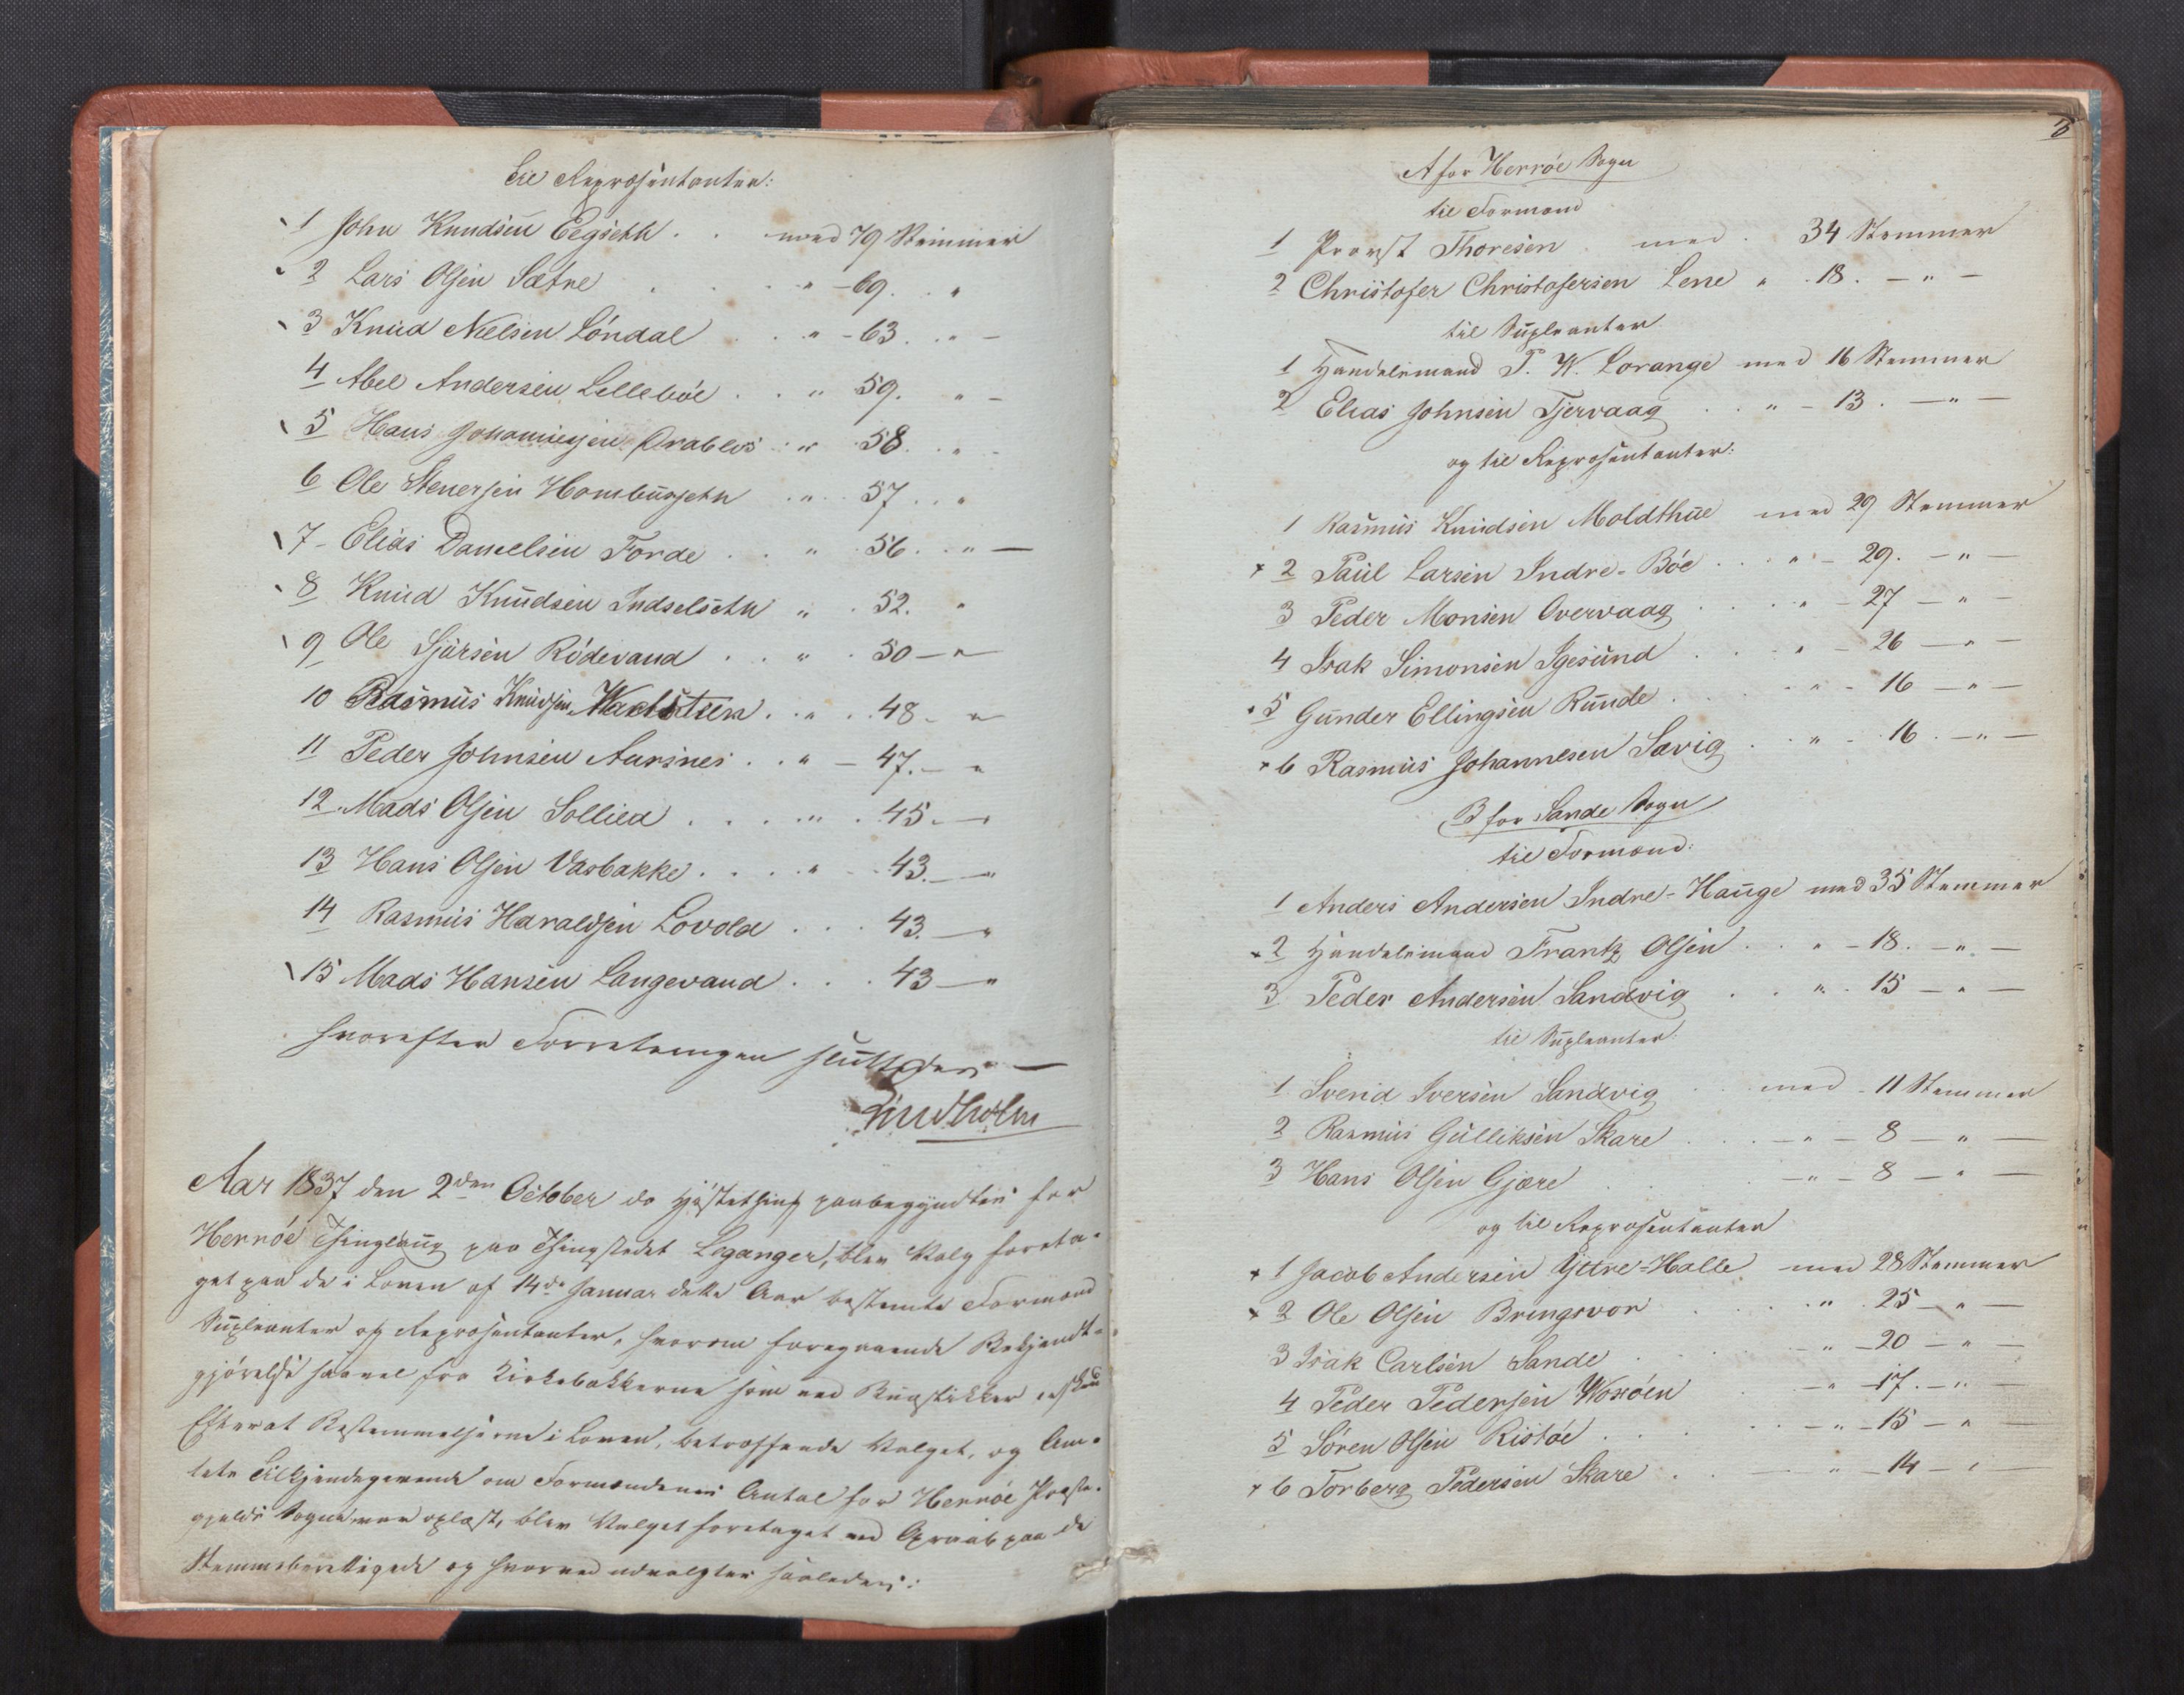 til Repræsentanter:
1 John Knudsen Eegseth . . med 79 Stemmer
2 Lars Olsen Sætre . . . " - 69 . . "
3 Knud Nielsen Löndal . . " - 63 . . " -
4 Abel Andersen Lilleböe . . " 59. " -
5 Hans Johannesen Drabløs . " . 58 . . "
6 Ole Stenersen Homborseth . " . . 57 . . "
7 - Elias Danielsen Forde . . " . 56 . . " —
8 Knud Knudsen Indselseth " . 52. "
9 Ole Sjursen Rödevand . . " . 50 — " —
10 Rasmus Knudsen . . " . . 48 - "
11 Peder Johnsen Aursnes . . " - 47. - "
12. Mads Olsen Sollied . . . " . 45. —
13 Hans Olsen Vasbakke . . . " . . 43. — "
14 Rasmus Haraldsen Lovold . . . 43. — "
15 Mads Hansen Langevand . . . 43 — "
hvorefter Forretningen sluttedes —
Lindholm
Aar 1837 den 2den October da Höstethinget paabegyndtes for
Herröe Thinglaug paa Thingstedet Leganger, blev Valg foreta-
get paa de i Loven af 14de Januar dette Aar bestemte Formænd
Supleanter og Repræsentanter, hvorom foregaaende Bekjendt-
gjörelse saavel fra Kirkebakkerne som ved Budstikker er skeed
Efterat Bestemmelserne i Loven, betræffende Valget, og Am-
tets Tilkjendegivende om Formændenes Antal for Herröe Præste-
gjelds Sogne var oplæst, blev Valget foretaget ved Opraab paa de
Stemmeberettigede og hvorved udvalgtes saaledes:
3
A for Herröe Sogn
til Formænd
1 Provst Thoresen . med . 34 Stemmer
2 Christofer Christofersen Lene " . 18. — " —
til Supleanter
1 Handelsmand P. W. Lorange med 16 Stemmer
2 Elias Johnsen Tjervaag . . " - 13. — " —
og til Repræsentanter:
1 Rasmus Knudsen Moldthue med 29 Stemmer
2 Paul Larsen Indre-Böe . . . " - 29. — " —
3 Peder Monsen Overvaag . . . . " - 27 — " —
4 Isak Simonsen Igesund . . . " - 26 — " —
5 Gunder Ellingsen Runde . . . " " - 16 — " —
6 Rasmus Johannesen Sævig . . " - 16. — " —
B for Sande Sogn
til Formænd:
1 Anders Andersen Indre-Hauge med 35 Stemmer
2 Handelsmand Frantz Olsen . . " - 18. — " —
3 Peder Andersen Sandvig . . " . 15 — " —
til Supleanter
1 Svend Iversen Sandvig . . med - 11 Stemmer
2 Rasmus Gulliksen Skare . . . — " — 8 — " —
3 Hans Olsen Gjære . . . — " — 8 — " —
og til Repræsentanter
1 Jacob Andersen Yttre-Halle med 28 Stemmer
2 Ole Olsen Bringsvor . . . . " . 25 — " —
3 Isak Carlsen Sande . . . — " — 20 — " —
4 Peder Pedersen . — " — 17. — " —
5 Sören Olsen Ristöe . . . . — " — 15 — " —
6 Torberg Pedersen Skare . . — " — 14 — " —